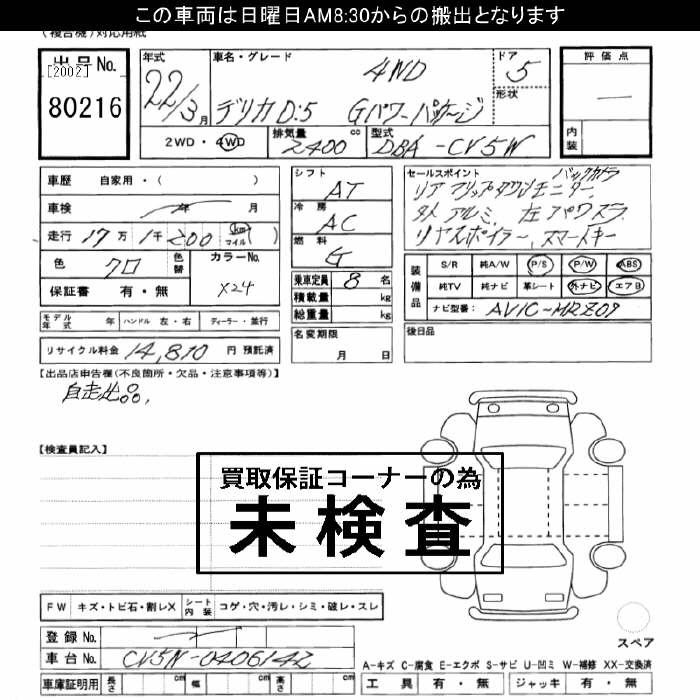 この車両は日曜日AM8:30からの搬出となります
(複合機)対応用紙
出品No.
[2002]
80216
年式
22/3月
車名・グレード
4WD
デリカD:5 Gパワーパッケージ
ドア
5
形状
評価点
―
内装
2WD・4WD
排気量 2400 cc
型式 DBA-CV5W
車歴 自家用・( )
車検 年 月
走行 17万1千200 (km マイル)
色 クロ
色替
カラーNo. X24
保証書 有・無
シフト AT
冷房 AC
燃料 G
乗車定員 8 名
積載量 kg
総重量 kg
セールスポイント
バックカメラ
リアフリップダウンモニター
タメアルミ 左パワスラ
リヤスポイラー、スマートキー
装備品
S/R 純A/W P/S P/W ABS
純TV 純ナビ 革シート 外ナビ エアB
ナビ型番: AVIC-MRZ09
モデル年式 年 ハンドル 左・右 ディーラー・並行
名変期限
月 日
後日品
リサイクル料金 14,810 円 預託済
【出品店申告欄(不良箇所・欠品・注意事項等)】
自走出品。
【検査員記入】
買取保証コーナーの為
未検査
FW キズ・トビ石・割レX シート内装 コゲ・穴・汚レ・シミ・破レ・スレ
登録No.
車台No. CV5W-0406142
スペア
A-キズ C-腐食 E-エクボ S-サビ U-凹ミ W-補修 XX-交換済
車庫証明用 長さ cm 幅 cm 高さ cm
工具 有・無 ジャッキ 有・無